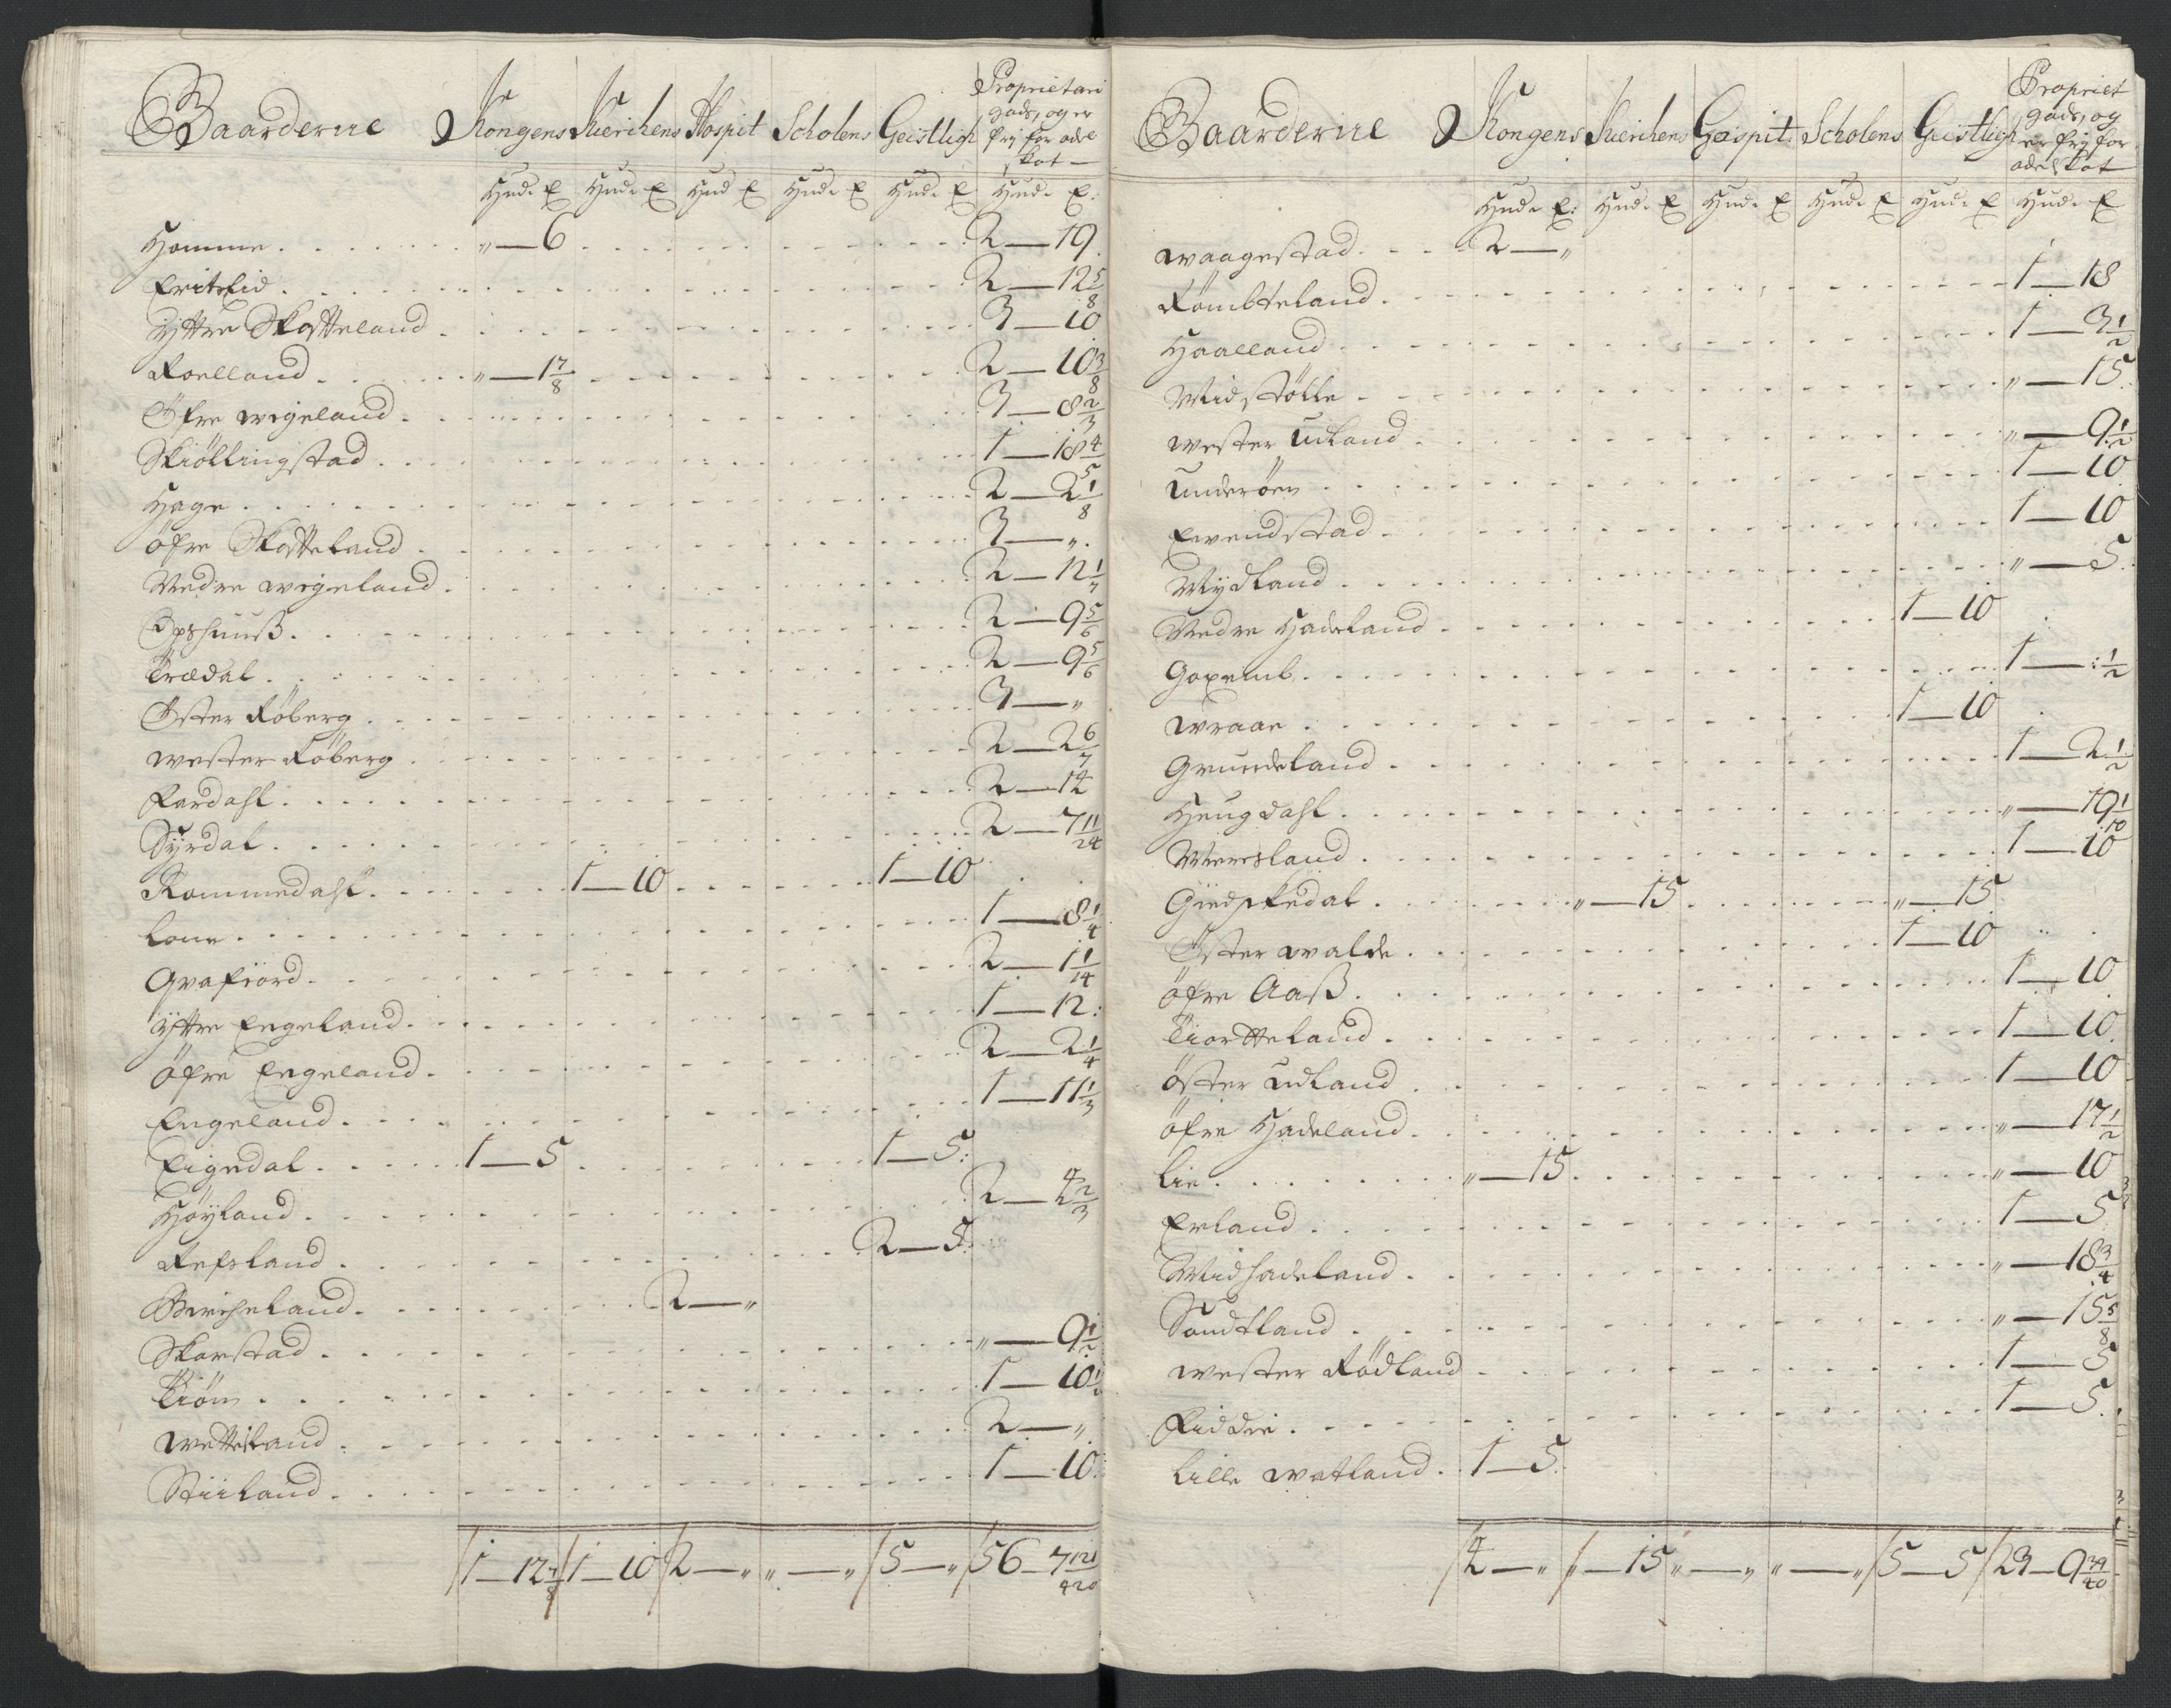 Gaarderne Kongens Kierckens Hospit Scholens Geistligh Proprietari gods, og er frj for odel skat
Hud. E Hud. E Hud E Hud. E Hud. E Hud. E:
Homme „—6 2—19
Fritzfid 2—12 5/8
Ÿttre Skofteland 3—10
Roelland „—1 7/8 2—10 3/8
Øfre wigeland 3—8 2/3
Skiöllingstad 1—18 4/5
Hage 2—2 1/8
Öfre Skofteland 3—„
Nedre wigeland 2—12 1/7
Opshuuß 2—9 5/6
Trædal 2—9 5/6
Øster Röberg 3—„
wester Röberg 2—2 6/7
Fardahl 2—14
Syrdal 2—7 11/24
Rommedahl 1—10 1—10
Lone 1—8 1/4
Qvafiord 2—1 1/14
Ÿttre Engeland 1—12
Öfre Engeland 2—2 1/4
Engeland 1—11 1/3
Eigedal 1—5 1—5
Höÿland 2—4 2/3
Refsland 2—5
Birkeland 2—„
Skarstad „—9 1/2
Tiöm 1—10 1/2
wetteland 2—„
Stiiland 1—10
1—12 7/8 1—10 2—„ „—„ 5—„ 56—7 121/420
Gaarderne Kongens Kierckens Gospit Scholens Geistligh Propriet gods, og er frj for odelskat
Hud. E: Hud. E Hud. E Hud. E Hud. E Hud. E
waagestad 2—„
Römbteland 1—18
Haalland 1—3 1/2
Midstölle „—15
wester Udland „—9 1/2
Underöen 1—10
Eivendstad 1—10
Mÿdland „—5
Nedre Hadeland 1—10
Goxemb 1—„ 1/2
wraae 1—10
Grundeland 1—2 1/2
Heugdahl „—19 1/10
Meresland 1—10
Giedskedal „—15 „—15
Øster walde 1—10
Öfre Aaß 1—10
Tiorteland 1—10
Öster Udland 1—10
Öfre Hadeland „—17 1/2
Lie „—15 „—10
Erland 1—5
Midhadeland „—18 3/4
Sandtland „—15 5/8
wester Rödland 1—5
Fiddie 1—5
Lille watland 1—5
4—„ „—15 „—„ „—„ 5—5 23—9 39/40